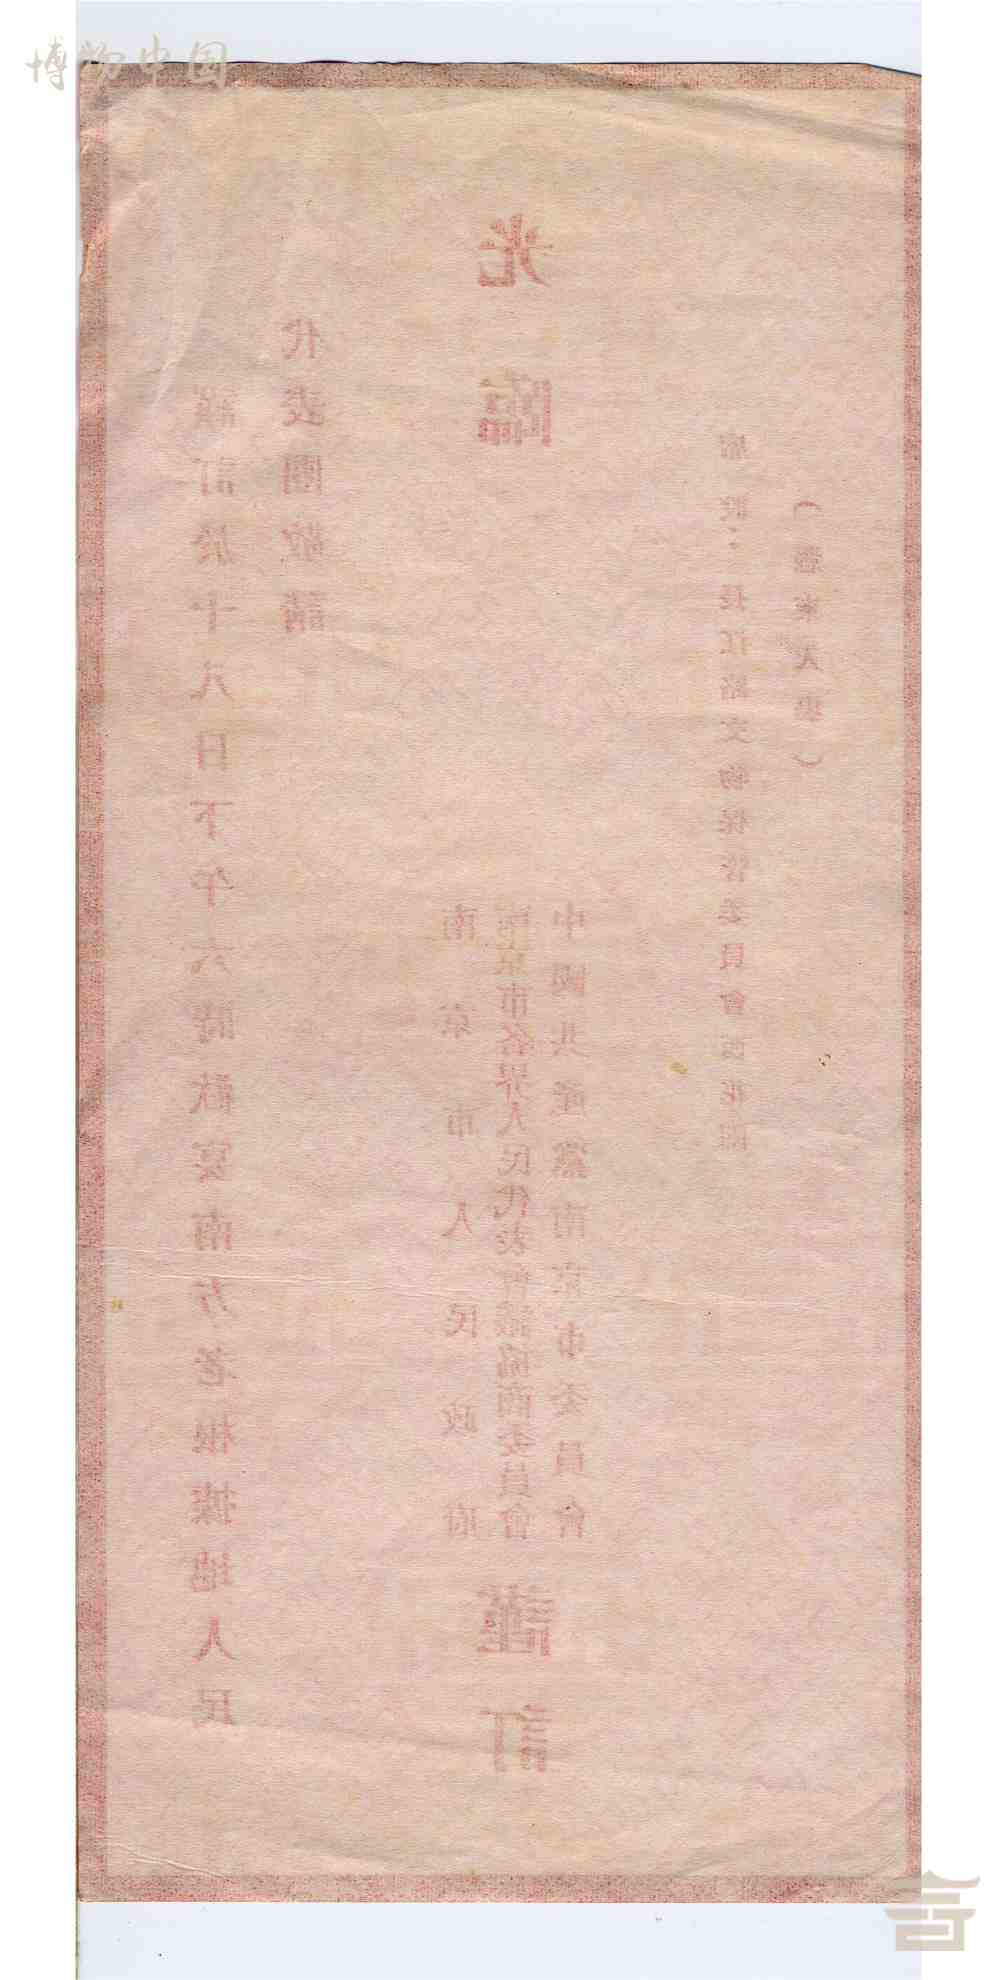 博物中国
謹訂於十八日下午六時歡宴南方老根據地人民
代表團敬請
光臨
南京市人民政府
南京市各界人民代表會議協商委員會
中國共產黨南京市委員會
謹訂
席設：長江路文物保管委員會西花園
（憑柬入）